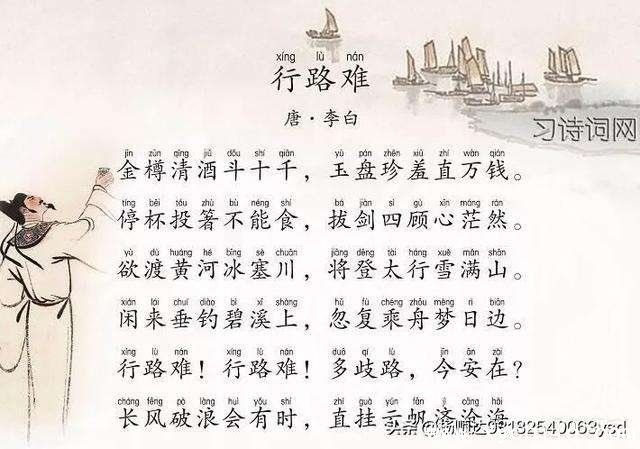 xíng lù nán
行路难
唐·李白
习诗词网
jīn zūn qīng jiǔ dǒu shí qiān yù pán zhēn xiū zhí wàn qián
金樽清酒斗十千，玉盘珍羞直万钱。
tíng bēi tóu zhù bù néng shí bá jiàn sì gù xīn máng rán
停杯投箸不能食，拔剑四顾心茫然。
yù dù huáng hé bīng sè chuān jiāng dēng tài háng xuě mǎn shān
欲渡黄河冰塞川，将登太行雪满山。
xián lái chuí diào bì xī shàng hū fù chéng zhōu mèng rì biān
闲来垂钓碧溪上，忽复乘舟梦日边。
xíng lù nán xíng lù nán duō qí lù jīn ān zài
行路难！行路难！多歧路，今安在？
cháng fēng pò làng huì yǒu shí zhí guà yún fān jì cāng hǎi
长风破浪会有时，直挂云帆济沧海
头条